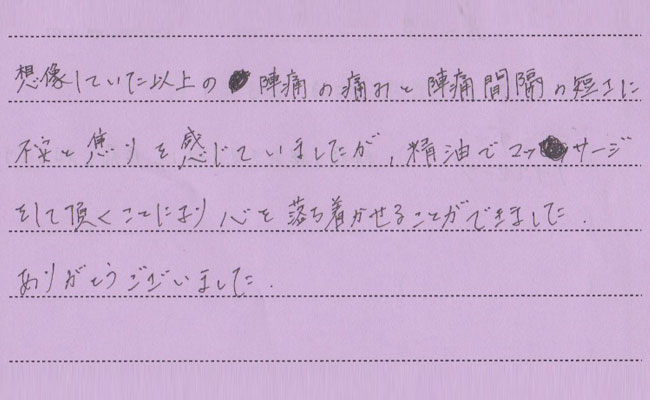 想像していた以上の陣痛の痛みと陣痛間隔の短さに
不安と焦りを感じていましたが、精油でマッサージ
をして頂くことにより心を落ち着かせることができました.
ありがとうございました.